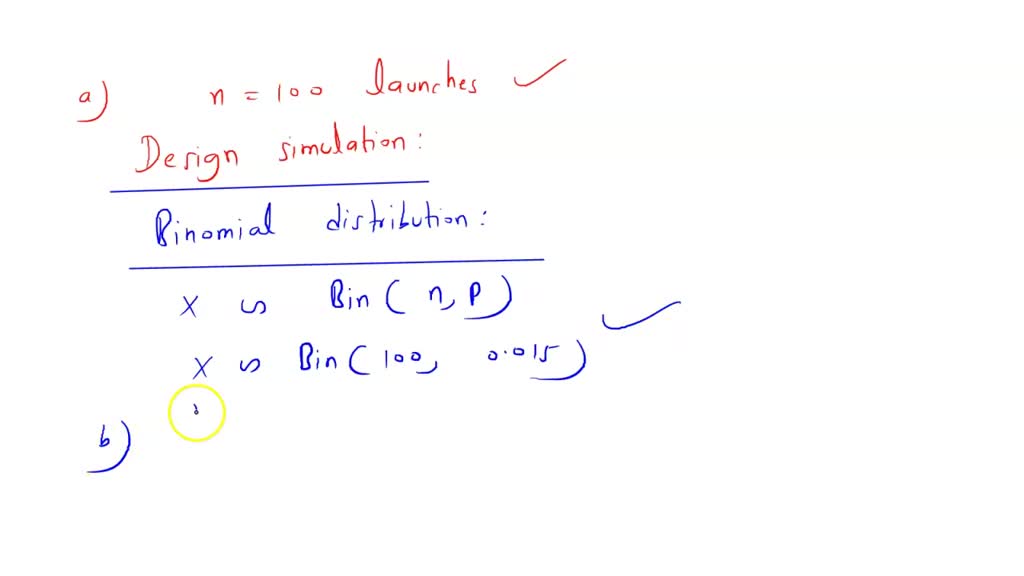 a) n = 100 launches ✓
Design simulation:
Binomial distribution:
X ∽ Bin( n, p )
X ∽ Bin( 100, 0.015 ) ✓
b)